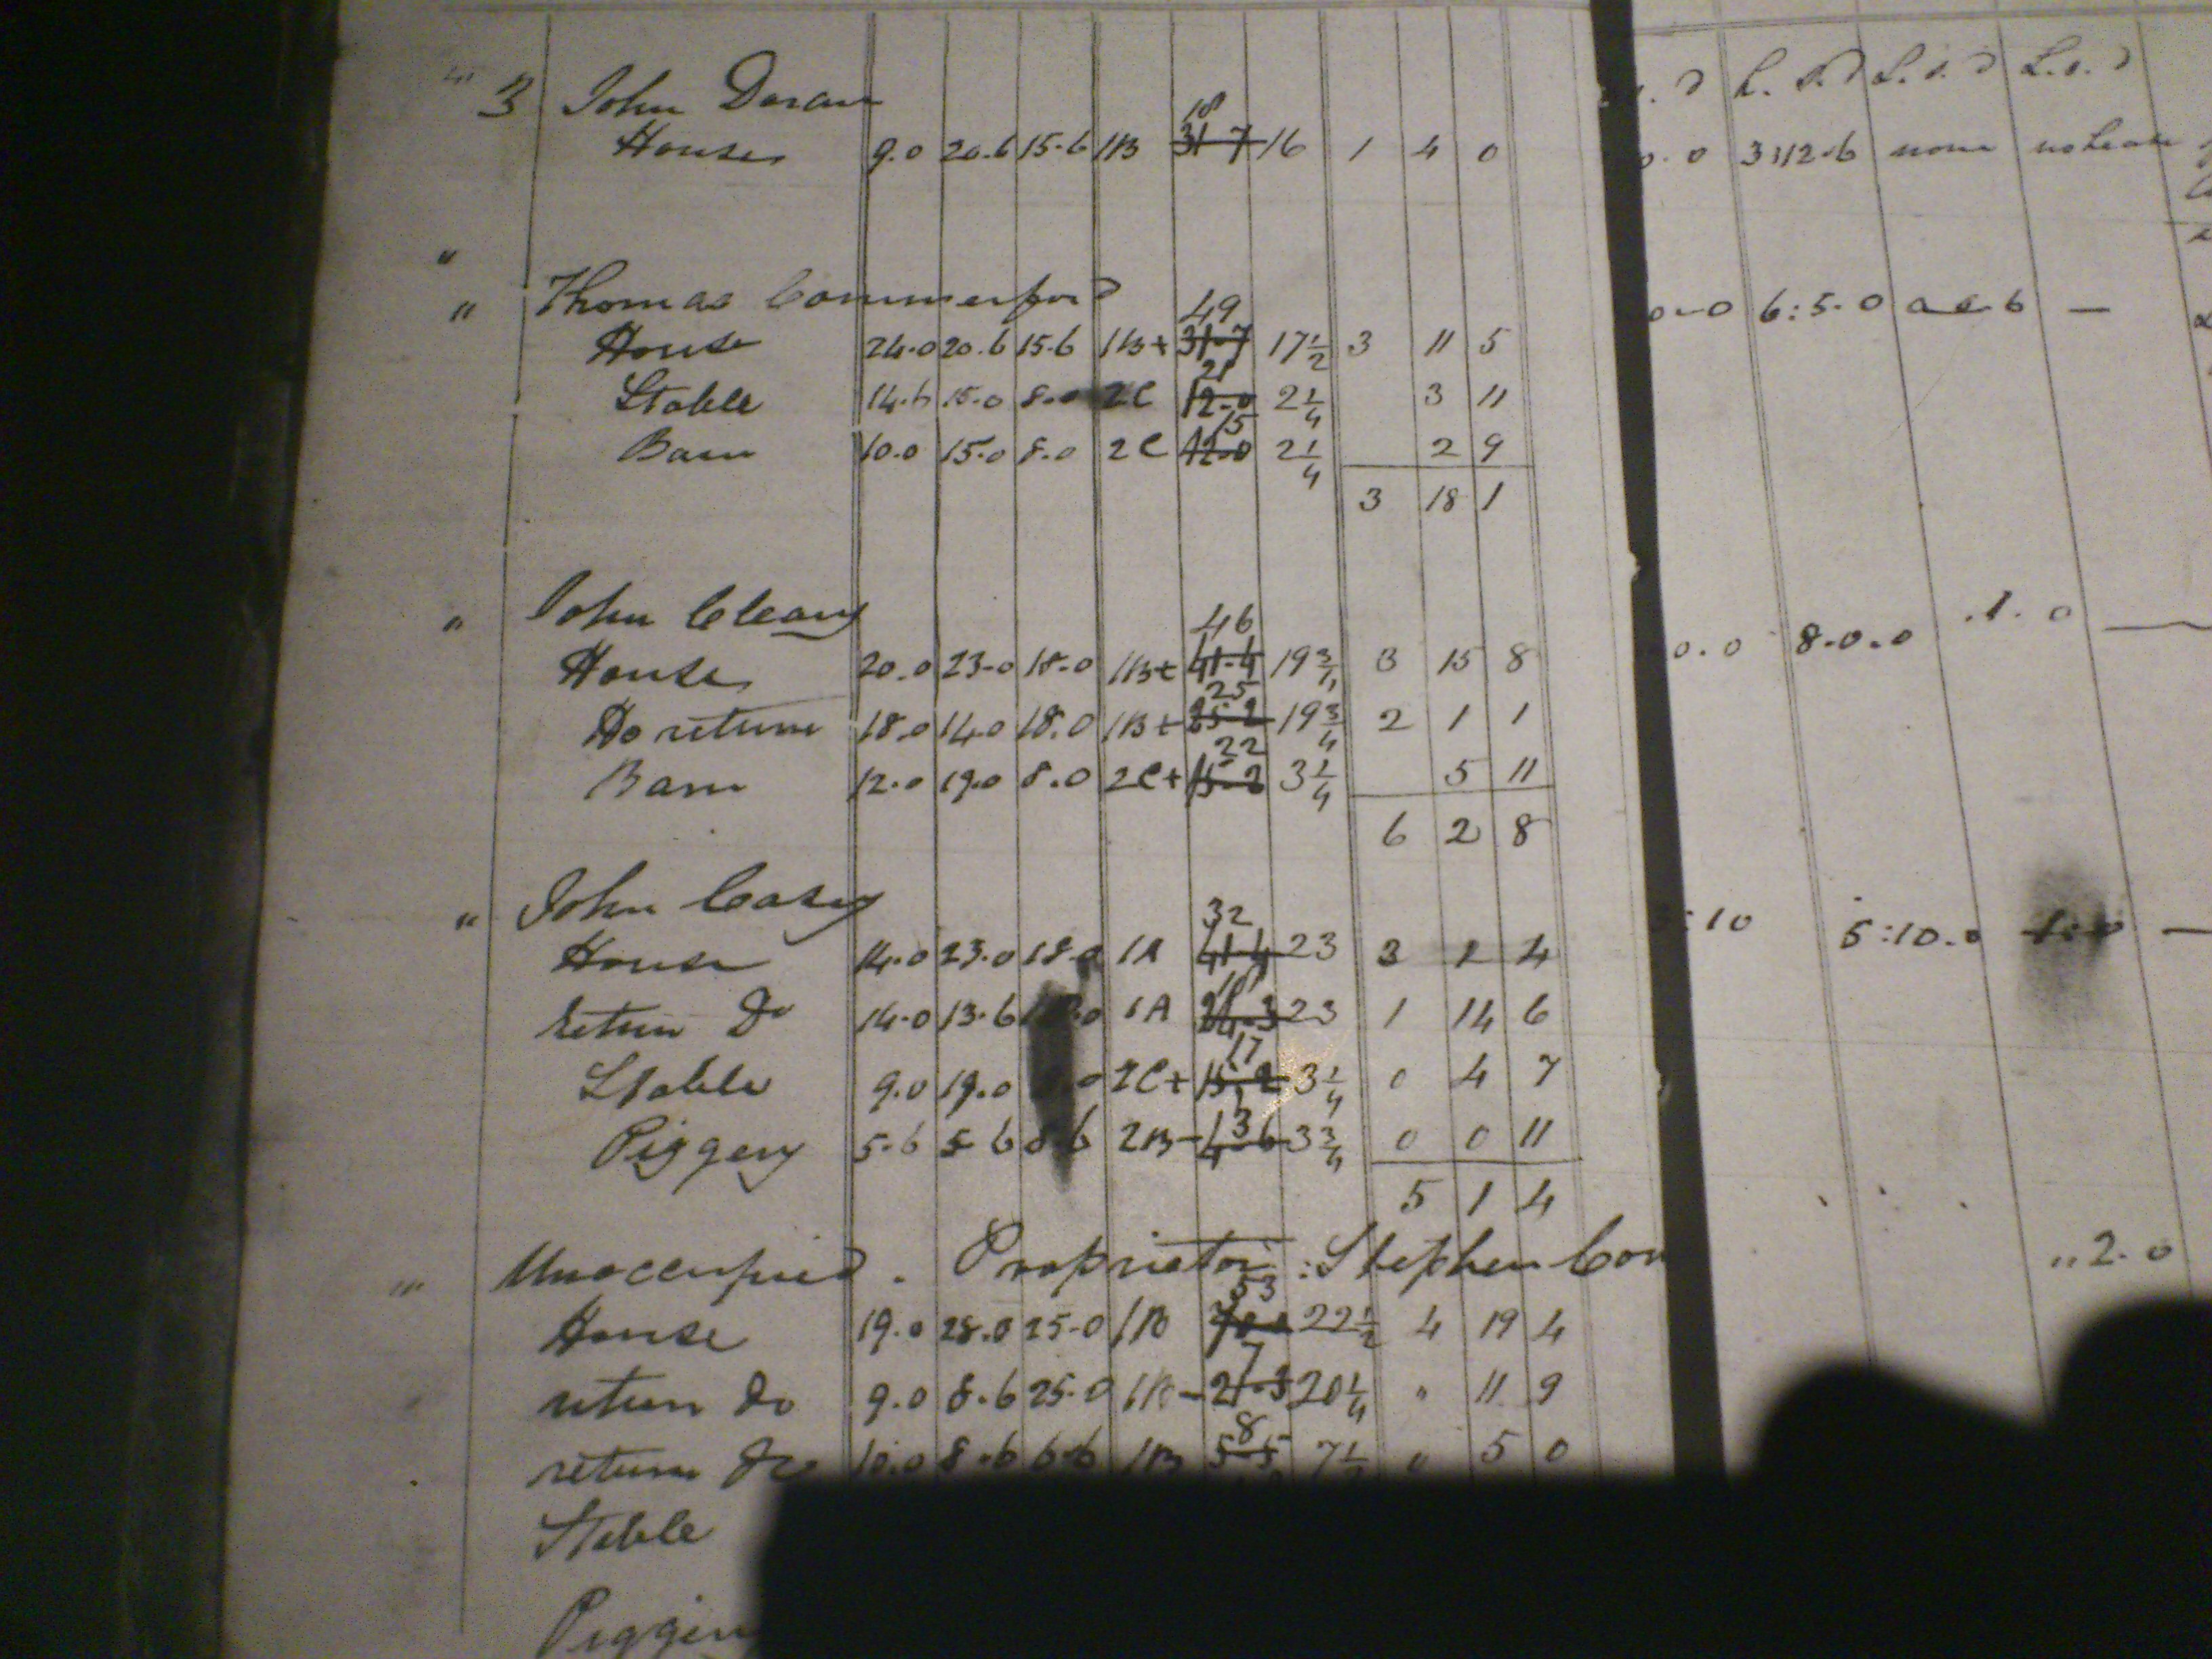 3 John Doran
House 9.0 20.6 15.6 1B 18 31 7 16 1 4 0
" Thomas Commerford
House 24.0 20.6 15.6 1B+ 49 31-7 17 1/2 3 11 5
Stable 14.6 15.0 8.0 2C 21 12-0 2 1/4 3 11
Barn 10.0 15.0 8.0 2C 15 12-0 2 1/4 2 9
3 18 1
" John Cleary
House 20.0 23-0 18.0 1B+ 46 41-4 19 3/4 3 15 8
Do return 18.0 14.0 18.0 1B+ 25 25-2 19 3/4 2 1 1
Barn 12.0 19.0 8.0 2C+ 22 15-2 3 1/4 5 11
6 2 8
" John Casey
House 14.0 23.0 18.0 1A 32 41-4 23 3 1 4
return Do 14.0 13.6 1A 18 24-3 23 1 14 6
Stable 9.0 19.0 2C+ 17 15-2 3 1/4 0 4 7
Piggery 5.6 5 6 8.6 2B- 3 4-6 3 3/4 0 0 11
5 1 4
" Unoccupied. Proprietor: Stephen Con
House 19.0 28.0 25-0 1B 53 22 1/2 4 19 4
return Do 9.0 8.6 25.0 1B- 7 21-3 20 1/4 " 11 9
return Do 10.0 8.6 6-6 1B 8 5-5 7 1/2 0 5 0
Stable
Piggery
L. s. d L. s. d L. s. d
0.0 3:12.6 none no Lease
0-0 6:5.0 a c 6 —
0.0 8.0.0 .1.0 —
:10 5:10.0 —
"2.0